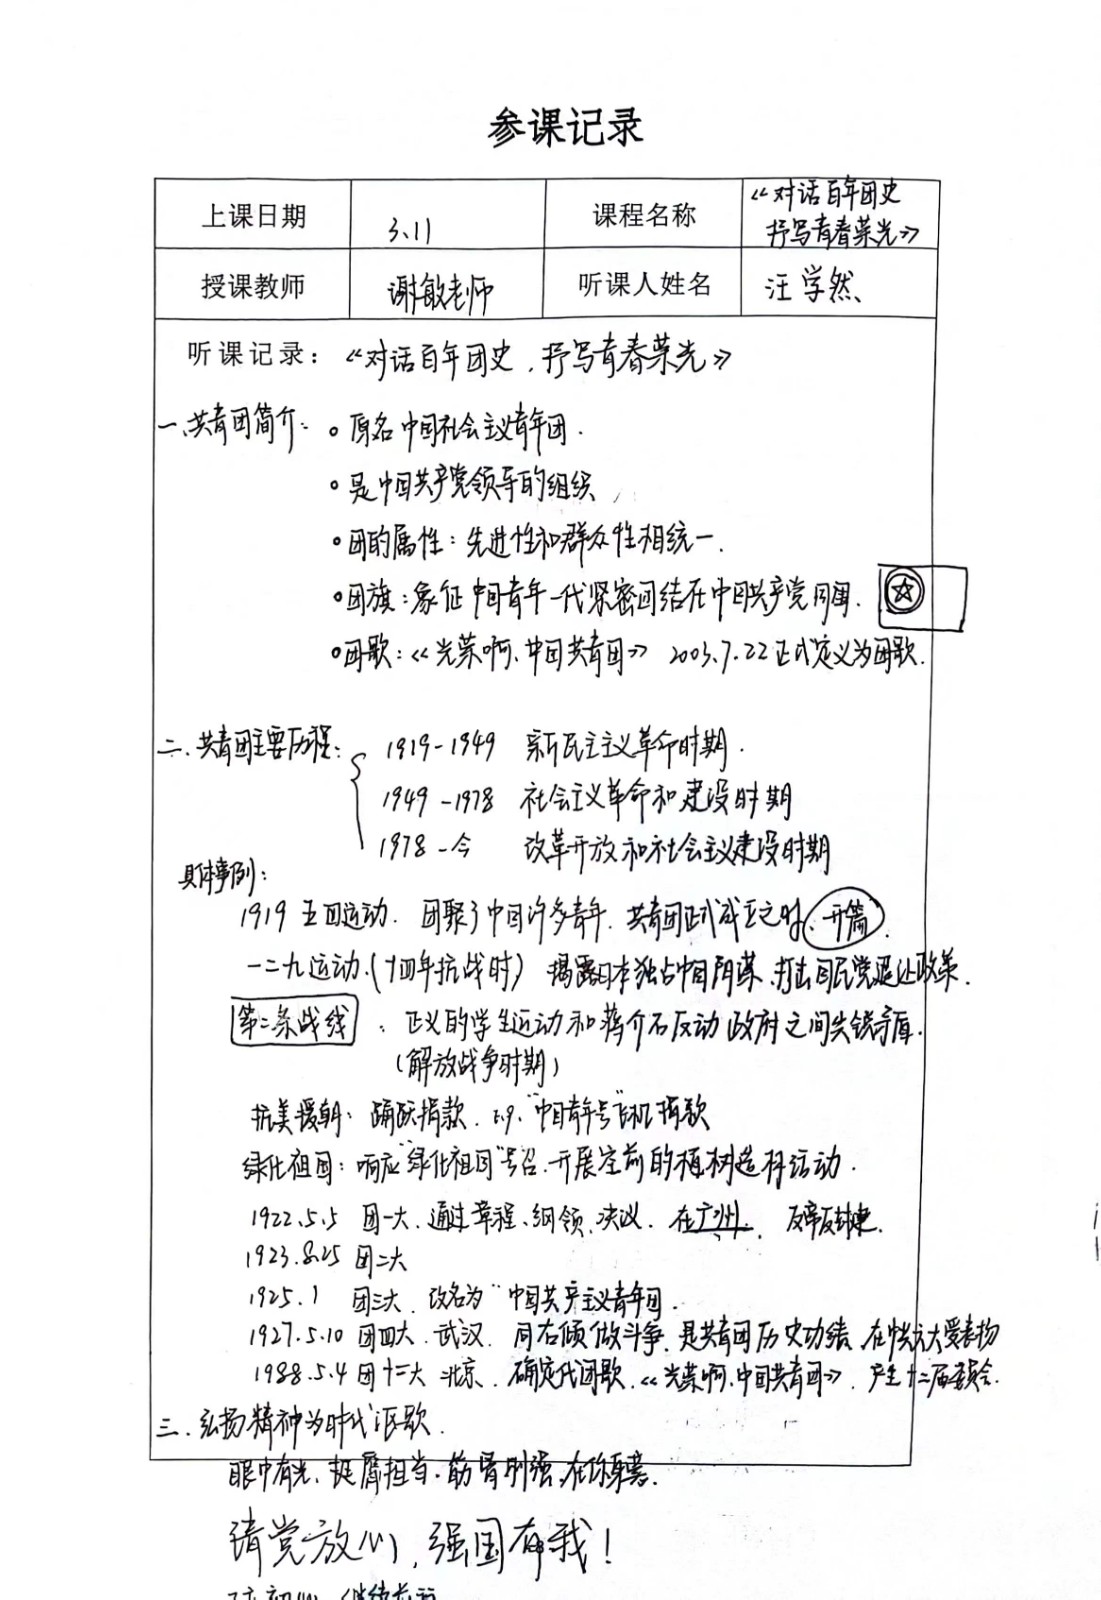 参课记录
上课日期 3、11 课程名称 《对话百年团史
抒写青春荣光》
授课教师 谢敏老师 听课人姓名 汪学然
听课记录：《对话百年团史，抒写青春荣光》
一、共青团简介：○原名中国社会主义青年团．
○是中国共产党领导的组织
○团的属性：先进性和群众性相统一．
○团旗：象征中国青年一代紧密团结在中国共产党周围．
○团歌：《光荣啊、中国共青团》 2003.7.22正式定义为团歌．
二、共青团主要历程：1919-1949 新民主主义革命时期．
1949-1978 社会主义革命和建设时期
1978-今 改革开放和社会主义建设时期
具体事例：
1919 五四运动．团聚了中国许多青年．共青团正式成立之时、开篇
一二九运动．（十四年抗战时）揭露日本独占中国阴谋、打击国民党退让政策．
第二条战线：正义的学生运动和蒋介石反动政府之间尖锐矛盾．
（解放战争时期）
抗美援朝：踊跃捐款．"中国青年号"飞机捐款
绿化祖国：响应"绿化祖国"号召．开展空前的植树造林活动．
1922.5.5 团一大．通过章程、纲领、决议．在广州． 反帝反封建．
1923.8.25 团二大
1925.1 团三大．改名为"中国共产主义青年团．
1927.5.10 团四大．武汉．同右倾做斗争．是共青团历史功绩、在
1988.5.4 团十二大 北京．确定代团歌．《光荣啊、中国共青团》．产生十二届委员会．
三．弘扬精神为时代讴歌．
眼中有光、挺膺担当．筋骨刚强、在你身旁．
请党放心，强国有我！